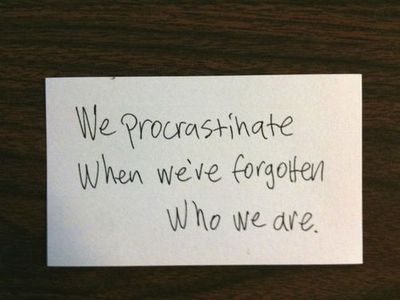 We procrastinate
When we've forgotten
Who we are.